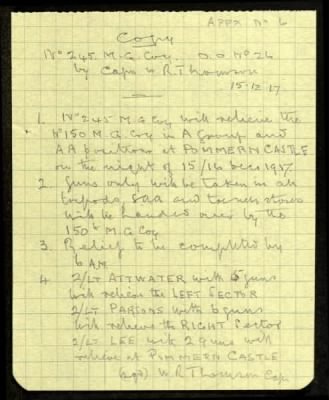 APPX No 6
Copy
No 245 M.G. Coy O.O No 26
by Capt W.R. Thomson
15.12.17
1. No 245 M G Coy will relieve the
No 150 M.G. Coy in A group and
AA positions at POMMERN CASTLE
on the night of 15/16 Decr 1917.
2. Guns only will be taken in all
tripods, SAA and trench stores
will be handed over by the
150th M.G Coy
3. Relief to be completed by
6 AM
4. 2/LT ATTWATER with 6 guns
will relieve the LEFT SECTOR
2/LT PARSONS with 6 guns
will relieve the RIGHT Sector
2/LT LEE with 2 guns will
relieve at POMMERN CASTLE
(sgd) W.R Thomson Capt